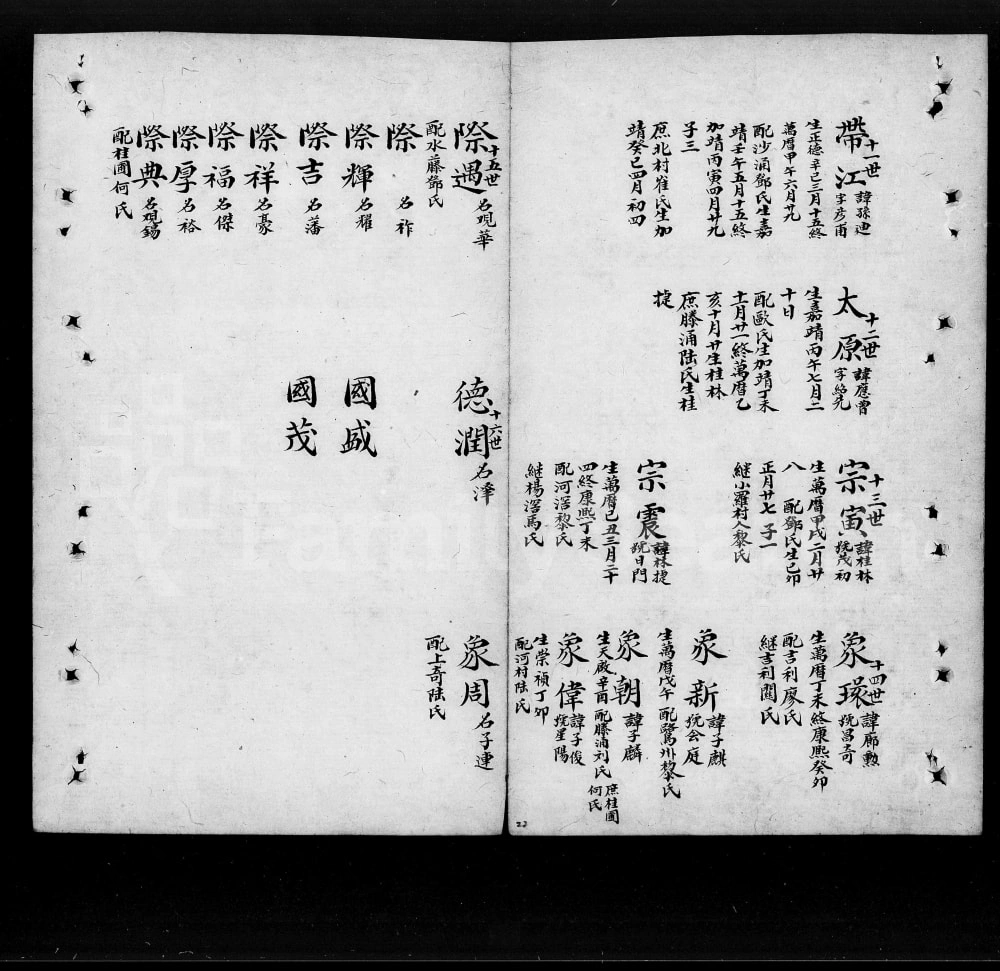 十一世
帶江 諱孫迪 字彥甫
生正德辛巳三月十五終
萬曆甲午六月廿九
配沙涌鄧氏生嘉
靖壬午五月十五終
加靖丙寅四月廿九
子三
庶北村崔氏生加
靖癸巳四月初四
十二世
太原 諱應曾 字紹先
生嘉靖丙午七月二
十日
配歐氏生加靖丁未
十一月廿一終萬曆乙
亥十月廿生桂林
庶滕涌陆氏生桂
捷
十三世
宗寅 諱桂林 號茂初
生萬曆甲戌二月廿
八 配鄧氏生己卯
正月廿七 子一
継小羅村人黎氏
宗震 諱林捷 號日門
生萬曆己丑三月二十
四終康熙丁未
配河滘黎氏
継楊滘馬氏
十四世
象環 諱廊勲 號昌奇
生萬曆丁未終康熙癸卯
配吉利廖氏
継吉利關氏
象新 諱子麒 號公庭
生萬曆戊午 配鷺洲黎氏
象朝 諱子麟
生天啟辛酉 配滕浦刘氏 庶桂圃何氏
象偉 諱子俊 號星陽
生崇禎丁卯
配河村陆氏
22
十五世
際遇 名覌華
配水藤鄧氏
際 名祚
際輝 名耀
際吉 名藩
際祥 名豪
際福 名傑
際厚 名裕
際典 名覌錫
配桂圃何氏
十六世
德潤 名澤
國盛
國茂
象周 名子連
配上奇陆氏